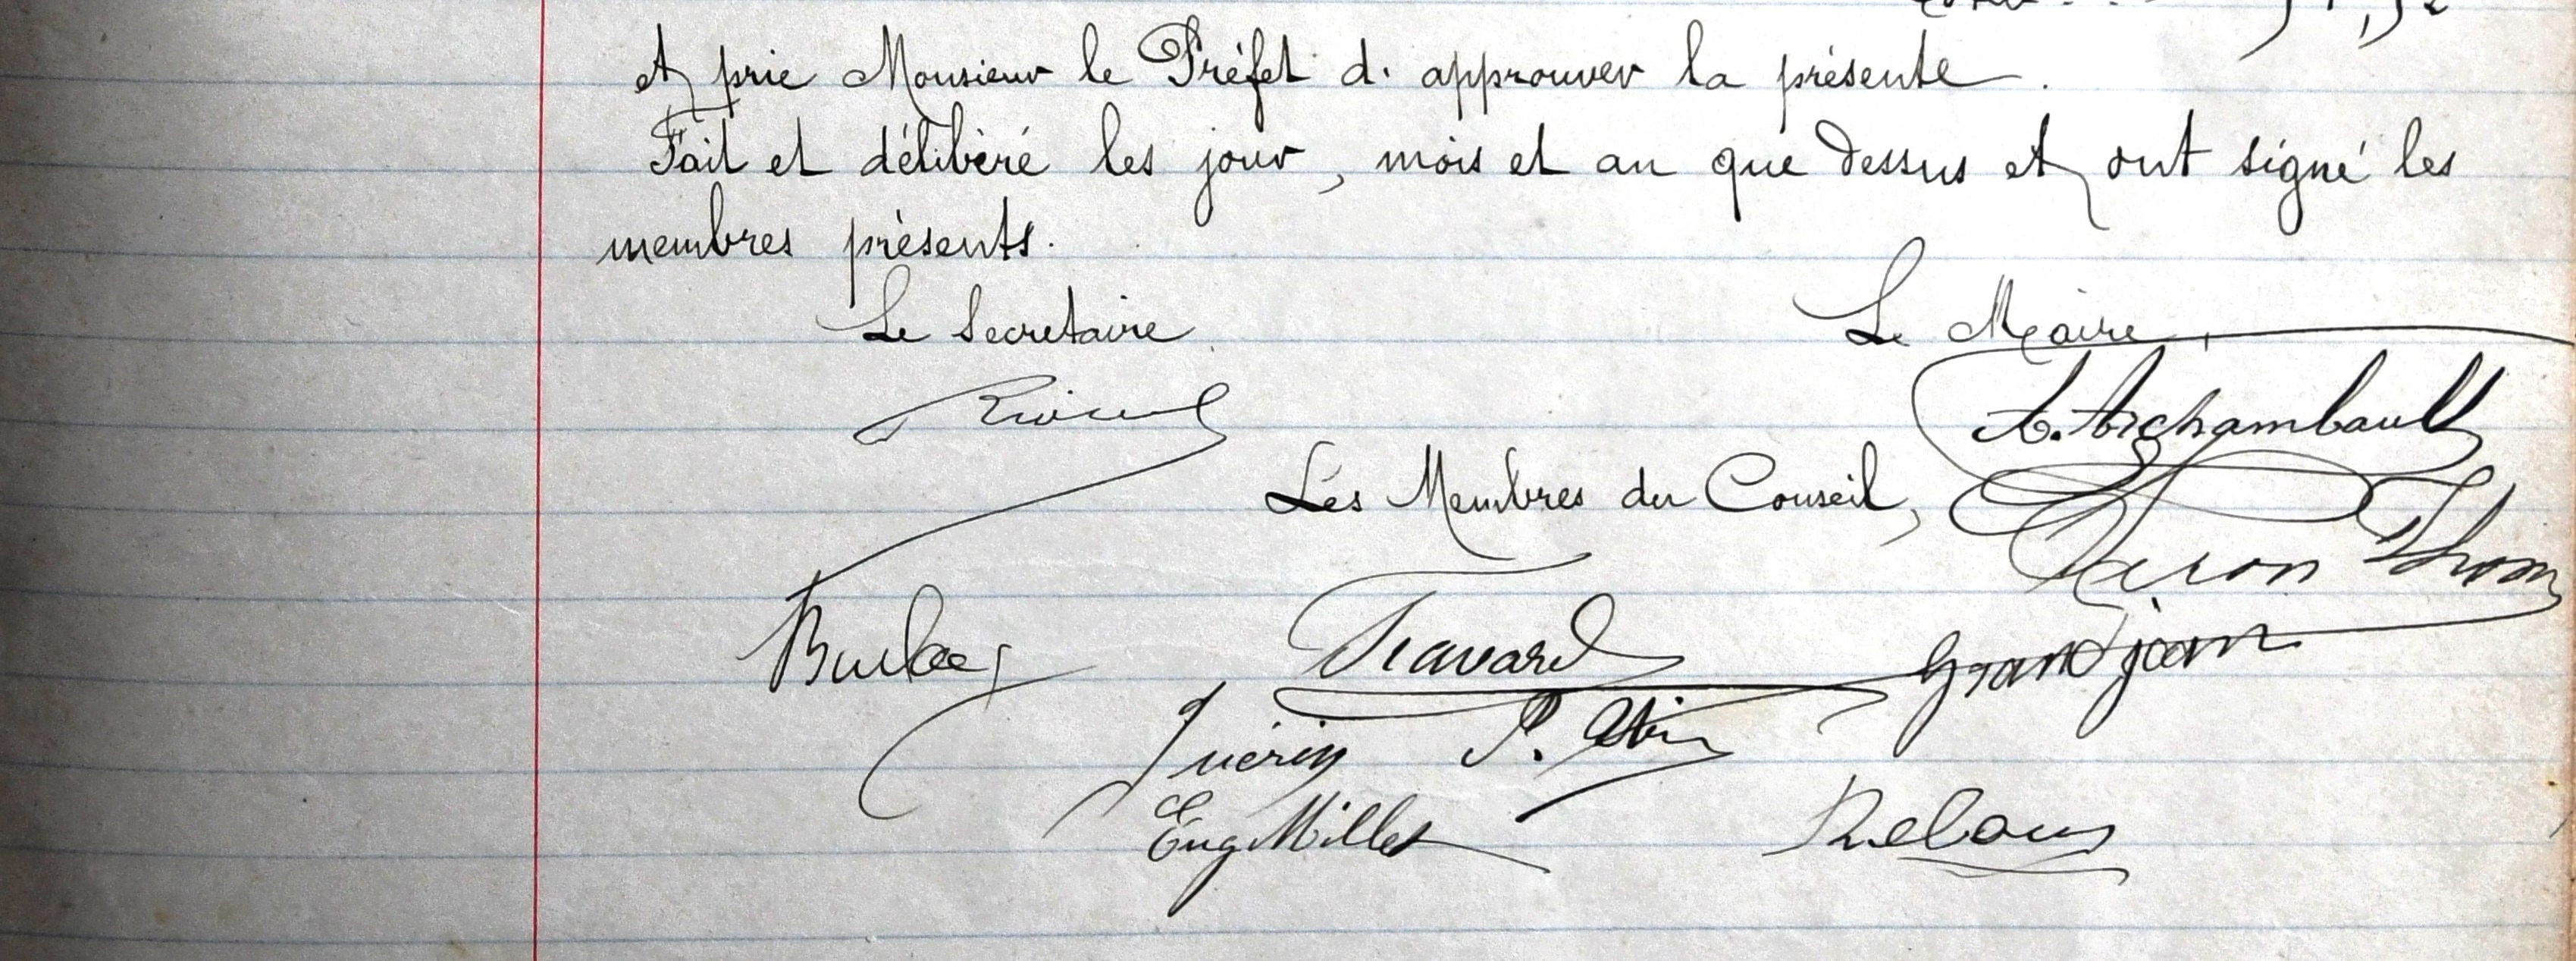 et prie Monsieur le Préfet d'approuver la présente.
Fait et délibéré les jour, mois et an que dessus et ont signé les
membres présents.
Le Secretaire
Le Maire,
A. Archambault
Les Membres du Conseil,
Thom
Travard
Grandjean
Guérin P.
Eug Millet